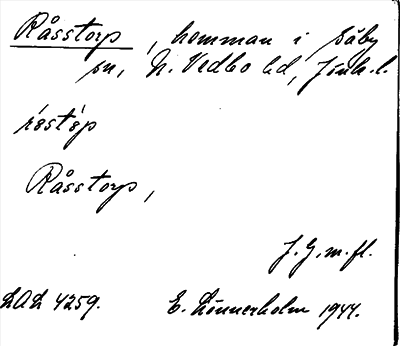 Råsstorp, hemman i Säby
sn, N. Vedbo hd, Jönk. l.
róstór̀p
Råsstorp,
J. G. m. fl.
LAL 4259. E. Lönnerholm 1944.